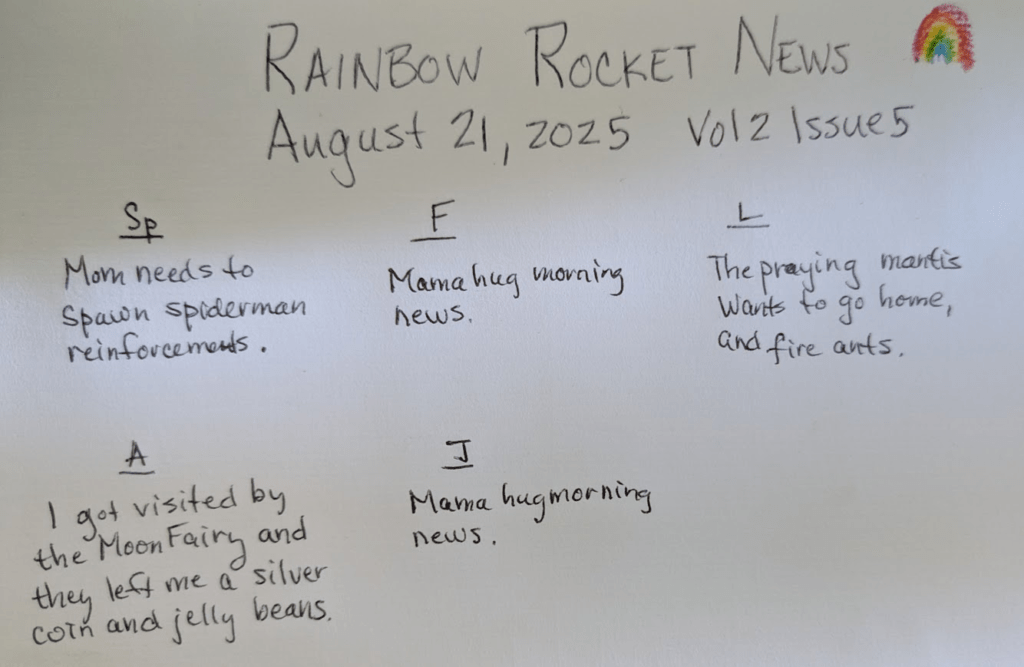 RAINBOW ROCKET NEWS
August 21, 2025 Vol 2 Issue 5
Sp
Mom needs to
Spawn spiderman
reinforcements.
F
Mama hug morning
news.
L
The praying mantis
wants to go home,
and fire ants.
A
I got visited by
the Moon Fairy and
they left me a silver
coin and jelly beans.
J
Mama hug morning
news.